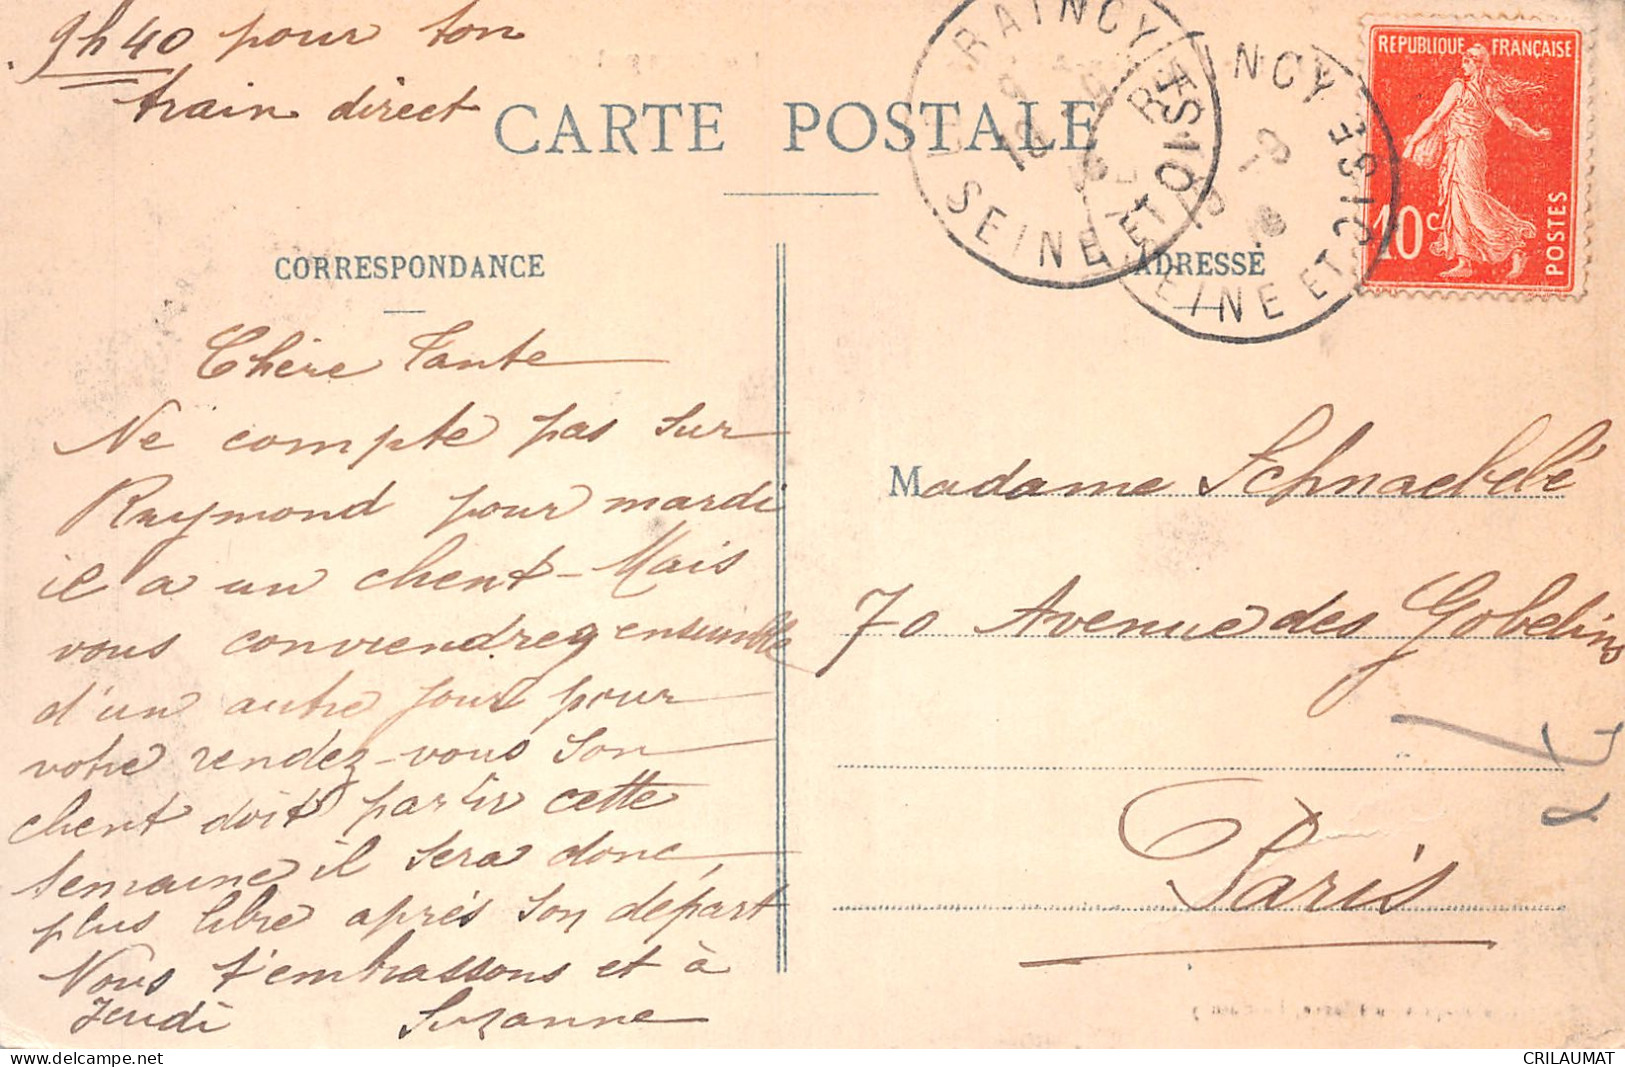 9h40 pour ton
train direct
CARTE POSTALE
RAINCY
SEINE ET OISE
RAINCY
SEINE ET OISE
REPUBLIQUE FRANÇAISE
10c
POSTES
CORRESPONDANCE
ADRESSE
Chère Tante
Ne compte pas sur
Raymond pour mardi
il a un client - Mais
vous conviendrez ensemble
d'un autre jour pour
votre rendez-vous son
client doit partir cette
semaine il sera donc
plus libre après son départ
Nous t'embrassons et à
Jeudi Suzanne
Madame Schnaebelé
70 Avenue des Gobelins
Paris
CRILAUMAT